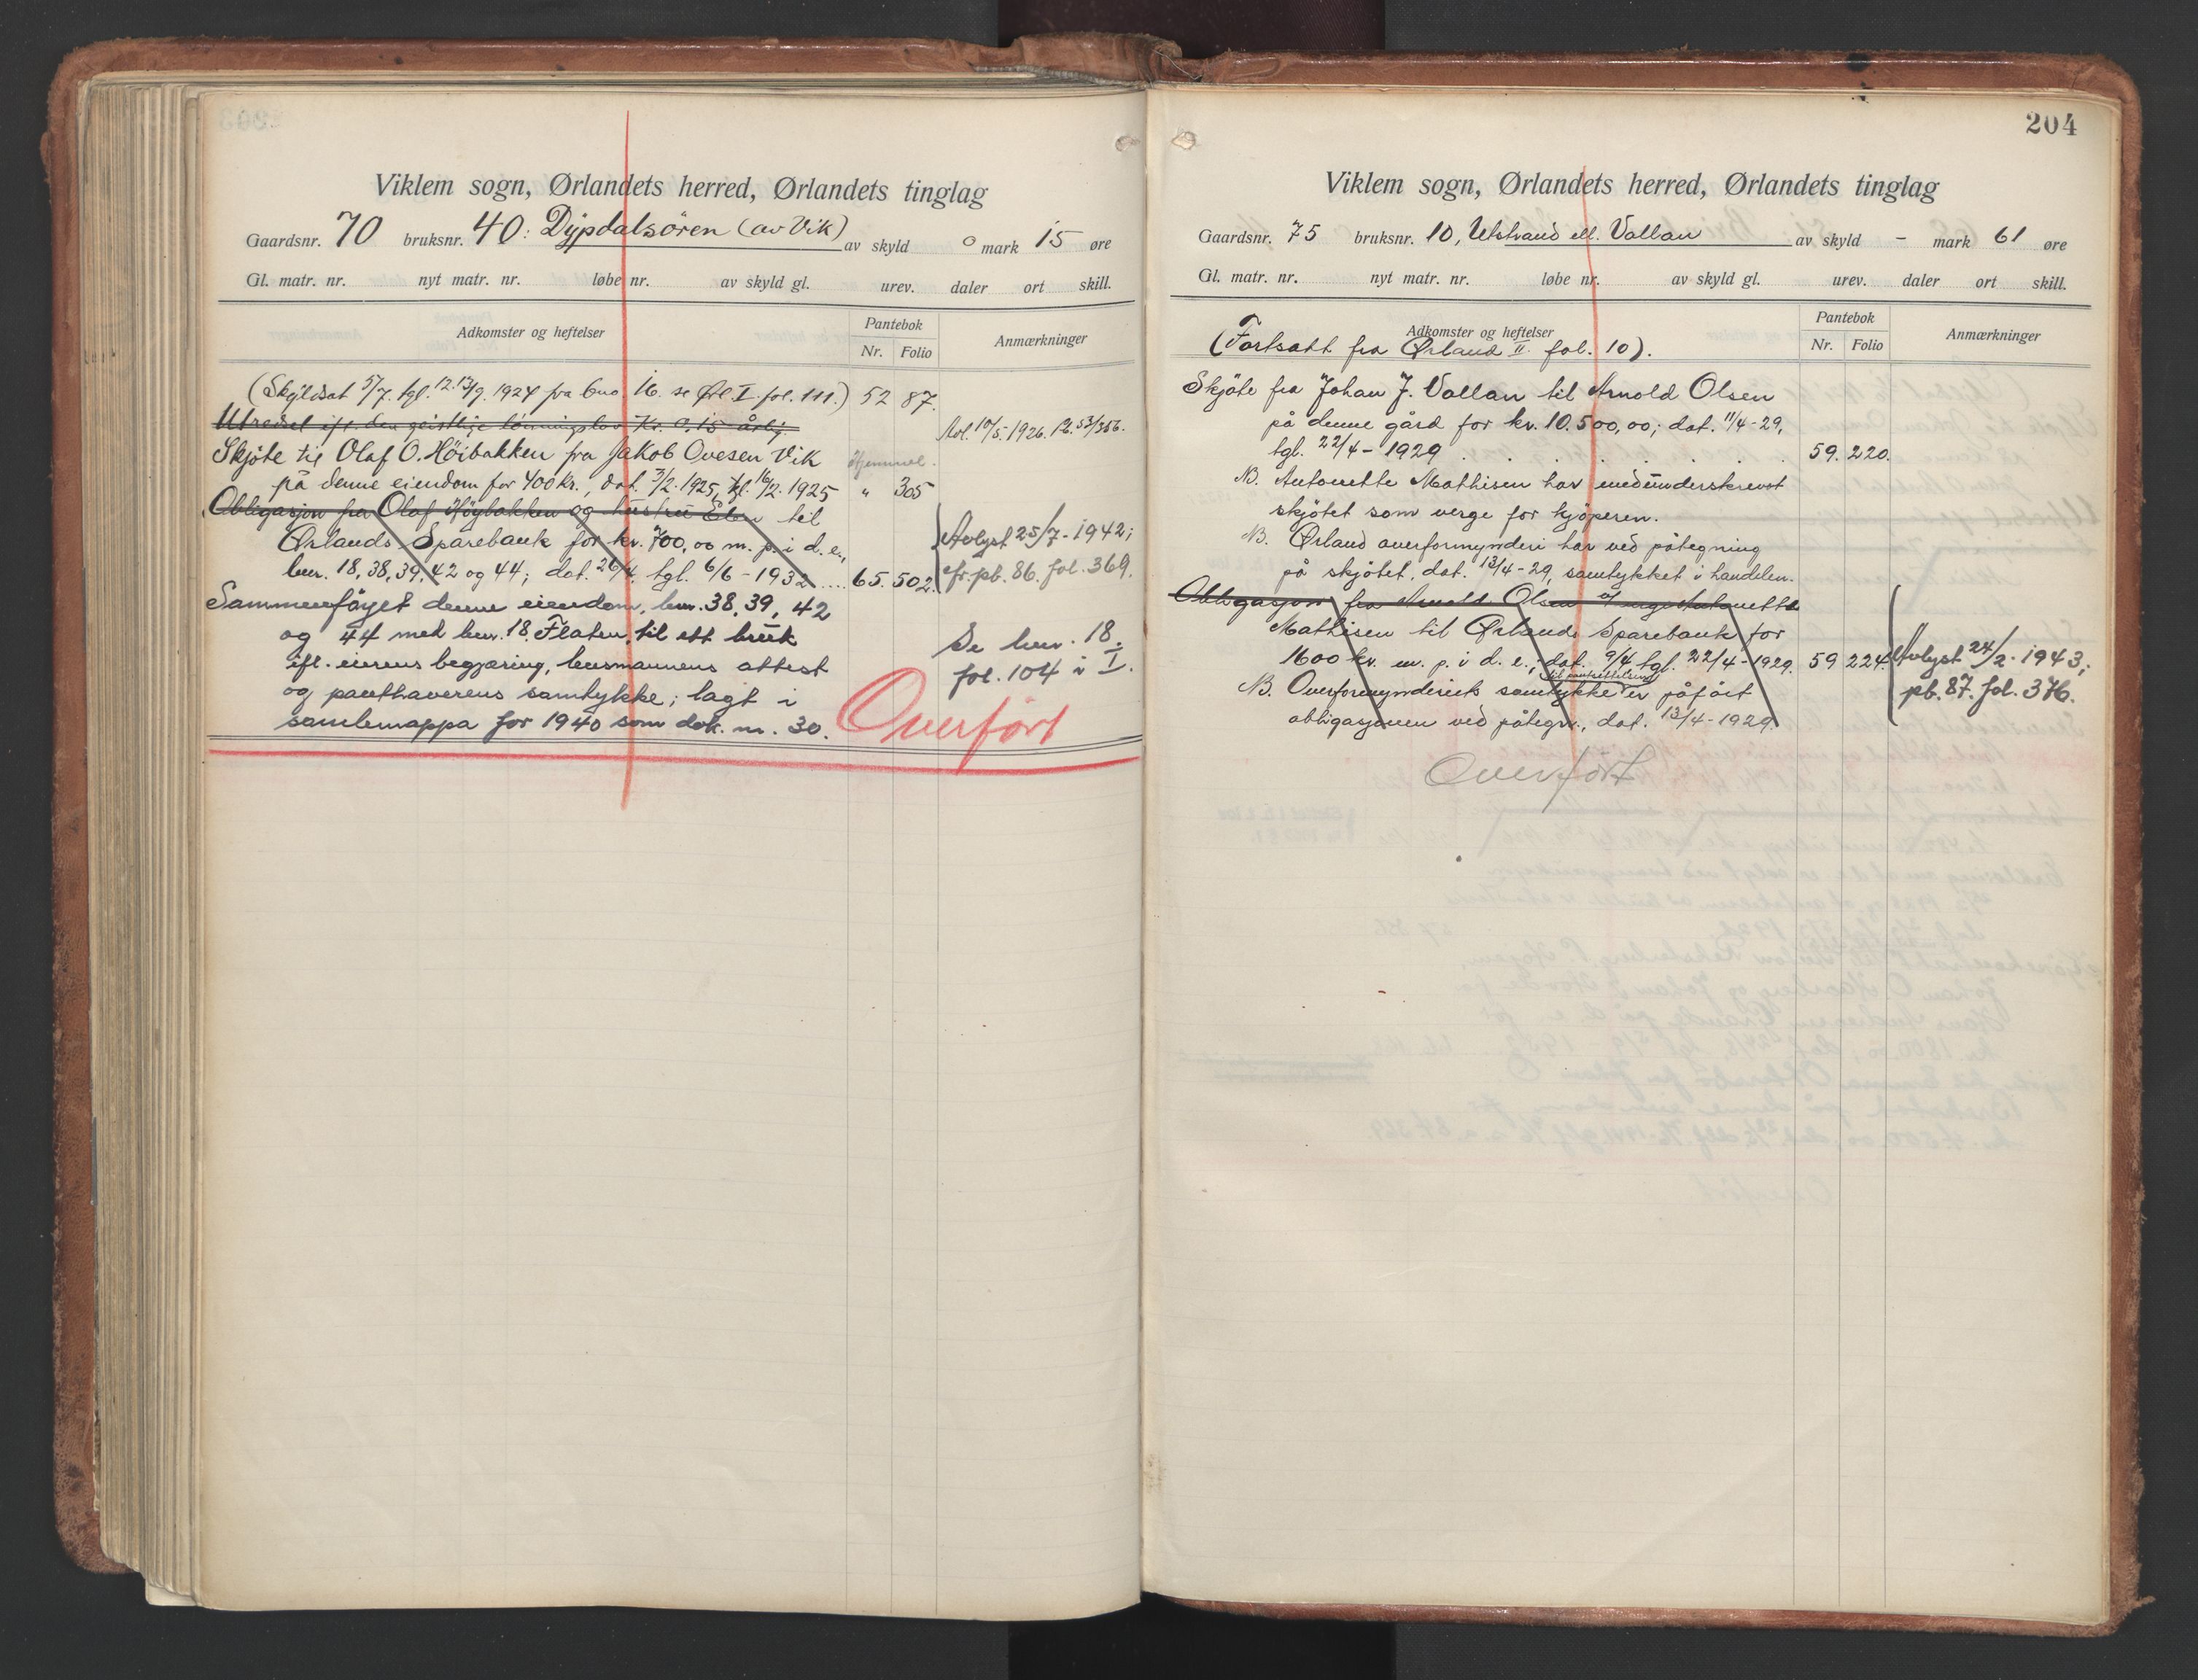 Viklem sogn, Ørlandets herred, Ørlandets tinglag
Gaardsnr. 70 bruksnr. 40: Dypdalsören (av Vik) av skyld 0 mark 15 øre
Gl. matr. nr. nyt matr. nr. løbe nr. av skyld gl. urev. daler ort skill.
Adkomster og heftelser Pantebok Anmærkninger
Nr. Folio
(Skyldsat 5/7. tgl. 12.13/9. 1924 fra bno 16. se Ørl. I. fol. 111.) 52 87.
Utredsel ifl. den geistlige lönningslov Kr. 0,15 årlig Avl. 10/5. 1926. Pb. 53/356.
Skjöte til Olaf O. Höibakken fra Jakob Ovesen Vik Hjemmel.
på denne eiendom for 400 kr., dat. 3/2. 1925, tgl. 16/2. 1925 " 305
Obligasjon fra Olaf Höybakken og hustru til
Ørlands Sparebank for kr. 700,00 m. p. i d. e., Avlyst 25/7- 1942;
bnr. 18, 38, 39, 42 og 44; dat. 26/4, tgl. 6/6 - 1932 .... 65. 502. cfr. pb. 86. fol. 369.
Sammenföyet denne eiendom, bnr. 38, 39, 42
og 44 med bnr. 18. Flaten, til ett bruk Se bnr. 18.
ifl. eierens begjæring, lensmannens attest fol. 104 i I.
og panthaverens samtykke; lagt i
samlemappa for 1940 som dok. nr. 30.
Overfört
204
Viklem sogn, Ørlandets herred, Ørlandets tinglag
Gaardsnr. 75 bruksnr. 10, Utstrand ell. Vallan av skyld - mark 61 øre
Gl. matr. nr. nyt matr. nr. løbe nr. av skyld gl. urev. daler ort skill.
Adkomster og heftelser Pantebok Anmærkninger
Nr. Folio
(Fortsatt fra Ørland II fol. 10).
Skjöte fra Johan J. Vallan til Arnold Olsen
på denne gård for kr. 10.500,00; dat. 11/4-29,
tgl. 22/4 - 1929 . . . . . . 59. 220.
NB. Antonette Mathisen har medunderskrevet
skjötet som verge for kjöperen.
NB. Ørland overformynderi har ved påtegning
på skjötet, dat. 13/4-29, samtykket i handelen.
Obligasjon fra Arnold Olsen Antonette
Mathisen til Ørlands Sparebank for
1600 kr. m. p. i d. e.; dat. 9/4 tgl. 22/4-1929. 59 224. Avlyst 24/2. 1943;
NB. Overformynderiets samtykke er påfört pb. 87. fol. 376.
obligasjonen ved påtegn., dat. 13/4-1929.
Overfört